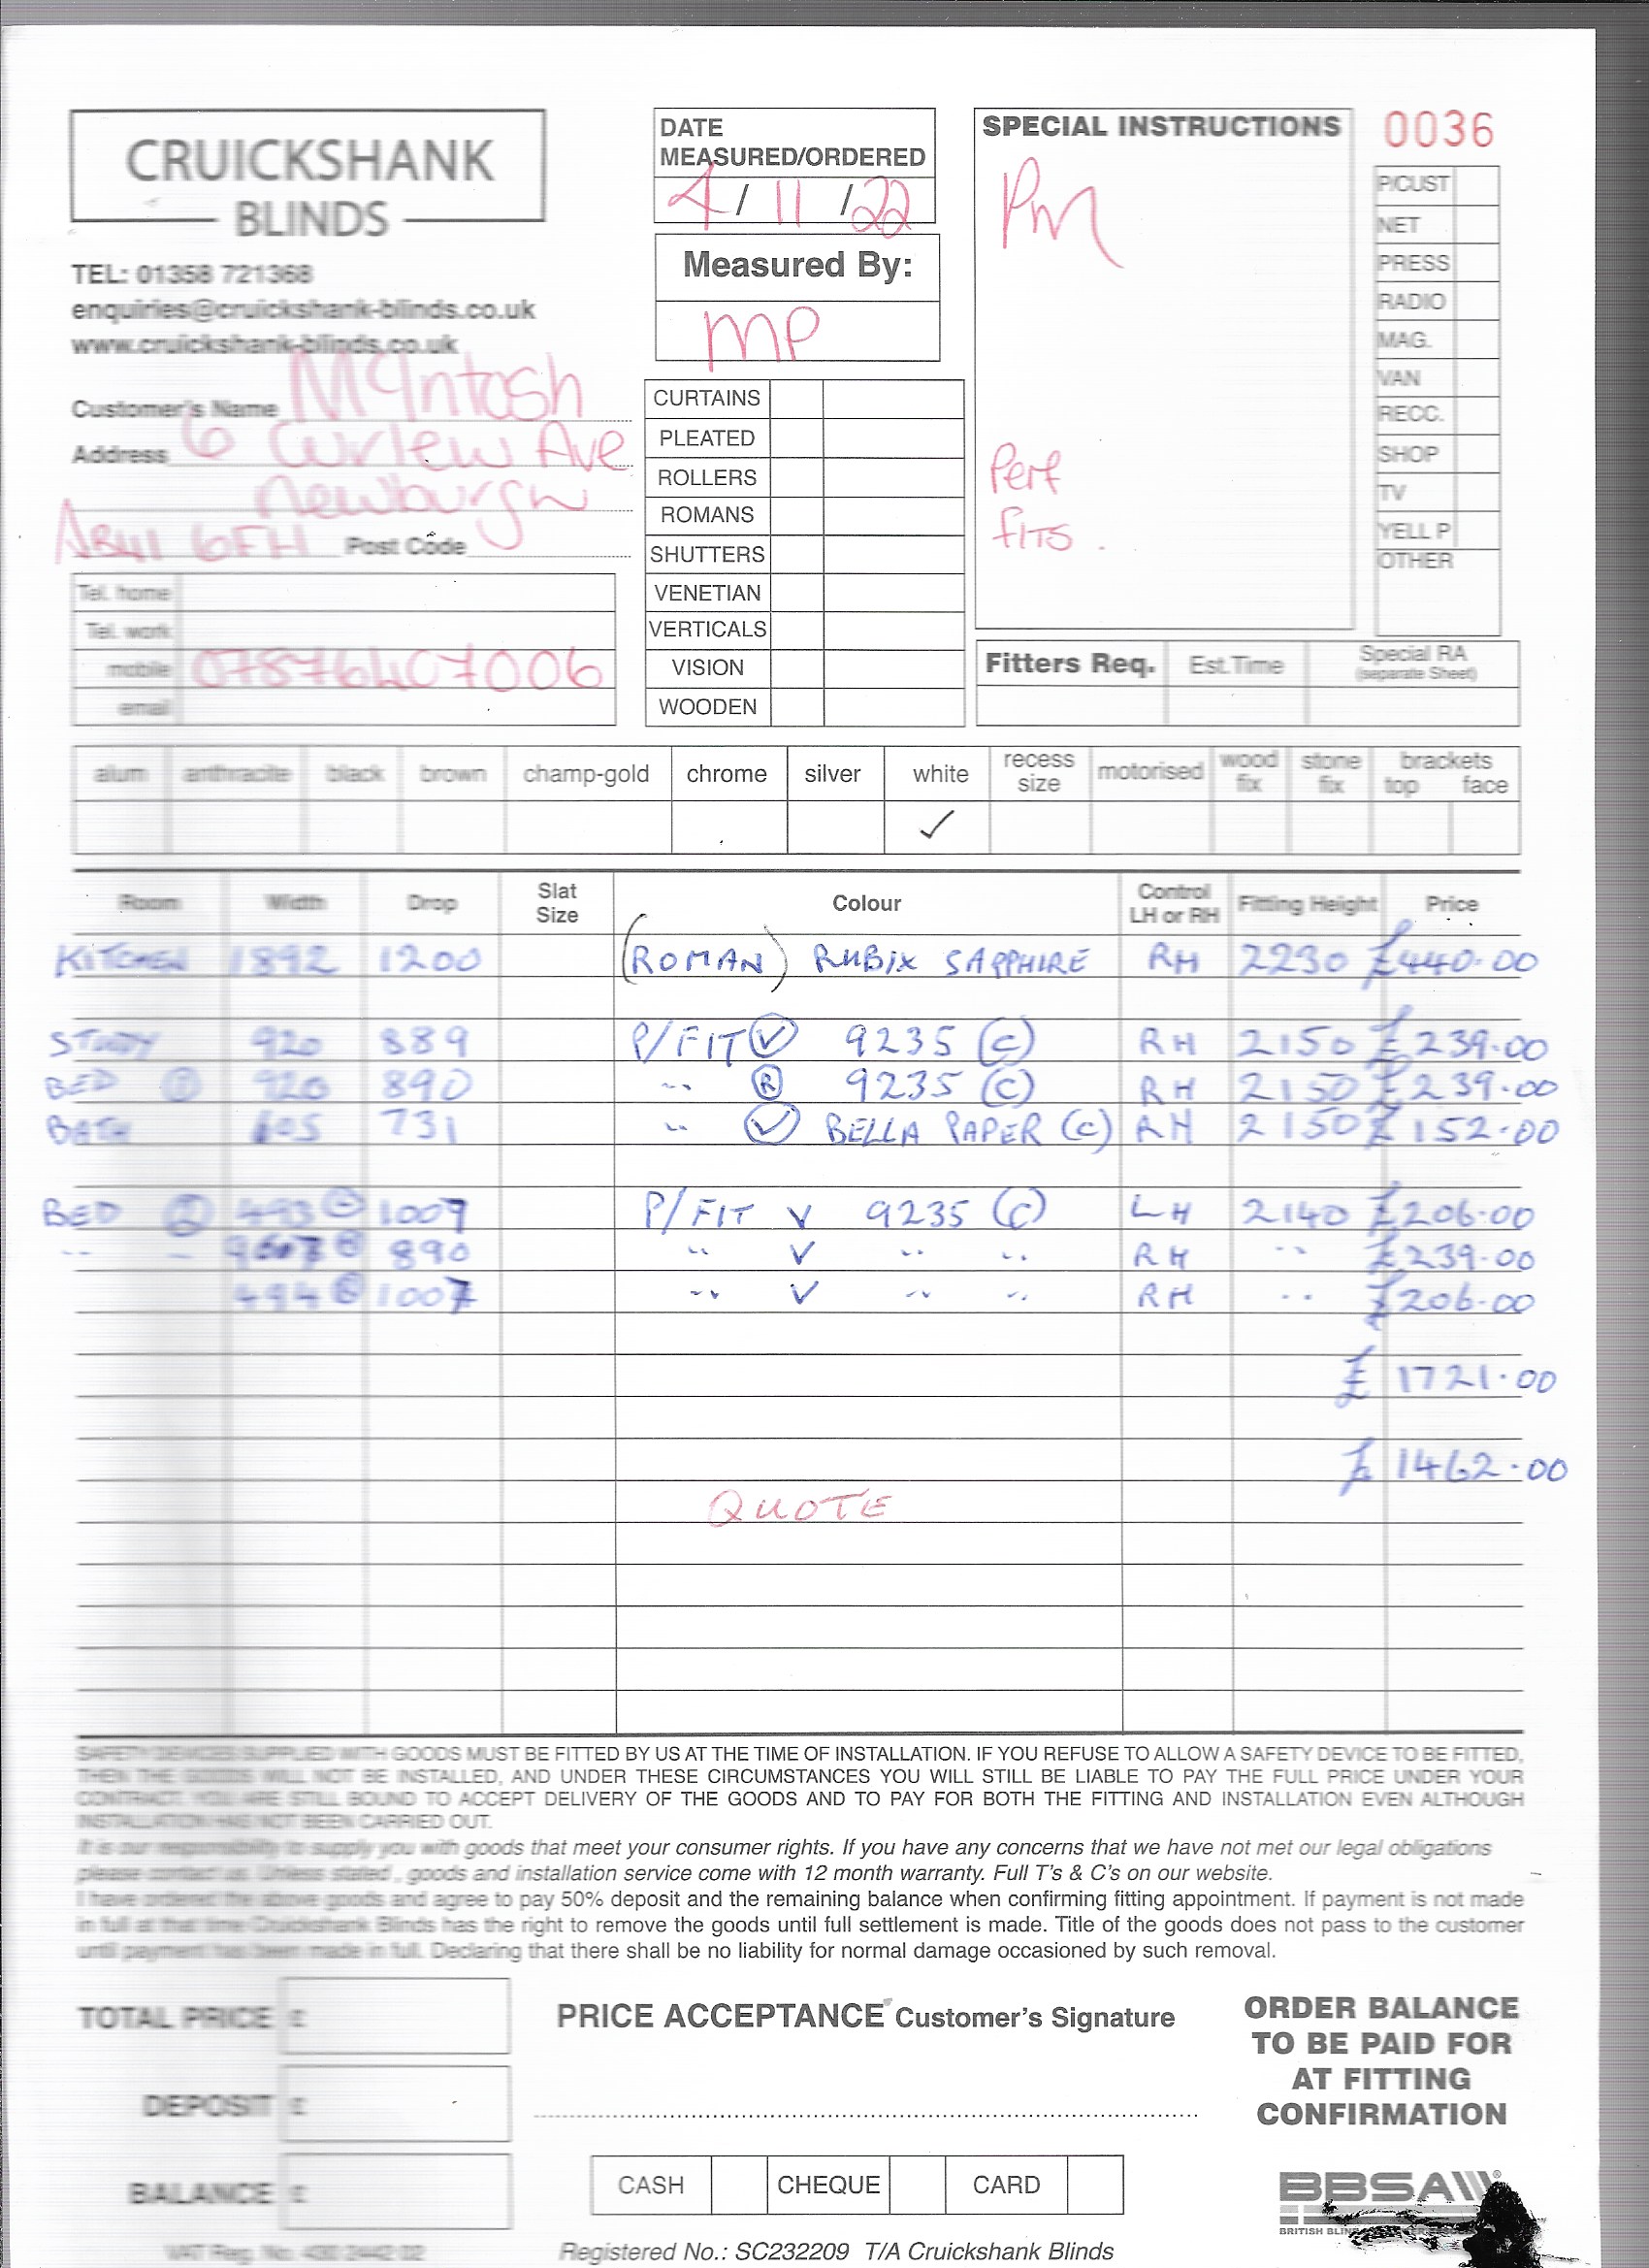 CRUICKSHANK
BLINDS
TEL: 01358 721368
enquiries@cruickshank-blinds.co.uk
www.cruickshank-blinds.co.uk
Customer's Name McIntosh
Address 6 Curlew Ave
Newburgh
AB41 6FH Post Code
Tel. home
Tel. work
mobile 07876407006
email
DATE
MEASURED/ORDERED
4/11/22
Measured By:
MP
CURTAINS
PLEATED
ROLLERS
ROMANS
SHUTTERS
VENETIAN
VERTICALS
VISION
WOODEN
SPECIAL INSTRUCTIONS
PM
Perf
fits.
0036
P/CUST
NET
PRESS
RADIO
MAG.
VAN
RECC.
SHOP
TV
YELL P
OTHER
Fitters Req. Est.Time Special RA
(separate Sheet)
alum anthracite black brown champ-gold chrome silver white recess size motorised wood fix stone fix brackets top face
✓
Room Width Drop Slat Size Colour Control LH or RH Fitting Height Price
KITCHEN 1892 1200 (ROMAN) RUBIX SAPPHIRE RH 2230 £440.00
STUDY 920 889 P/FIT V 9235 (C) RH 2150 £239.00
BED 920 890 " R 9235 (C) RH 2150 £239.00
BATH 605 731 " V BELLA PAPER (C) RH 2150 £152.00
BED 493 1007 P/FIT V 9235 (C) LH 2140 £206.00
" 890 " V " " RH " £239.00
494 1007 " V " " RH " £206.00
£1721.00
£1462.00
QUOTE
SAFETY DEVICES SUPPLIED WITH GOODS MUST BE FITTED BY US AT THE TIME OF INSTALLATION. IF YOU REFUSE TO ALLOW A SAFETY DEVICE TO BE FITTED,
THEN THE GOODS WILL NOT BE INSTALLED, AND UNDER THESE CIRCUMSTANCES YOU WILL STILL BE LIABLE TO PAY THE FULL PRICE UNDER YOUR
CONTRACT. YOU ARE STILL BOUND TO ACCEPT DELIVERY OF THE GOODS AND TO PAY FOR BOTH THE FITTING AND INSTALLATION EVEN ALTHOUGH
INSTALLATION HAS NOT BEEN CARRIED OUT.
It is our responsibility to supply you with goods that meet your consumer rights. If you have any concerns that we have not met our legal obligations
please contact us. Unless stated, goods and installation service come with 12 month warranty. Full T's & C's on our website.
I have ordered the above goods and agree to pay 50% deposit and the remaining balance when confirming fitting appointment. If payment is not made
in full at that time Cruickshank Blinds has the right to remove the goods until full settlement is made. Title of the goods does not pass to the customer
until payment has been made in full. Declaring that there shall be no liability for normal damage occasioned by such removal.
TOTAL PRICE £
DEPOSIT £
BALANCE £
PRICE ACCEPTANCE Customer's Signature
CASH CHEQUE CARD
ORDER BALANCE
TO BE PAID FOR
AT FITTING
CONFIRMATION
BBSA
BRITISH
VAT Reg. No. 430 2442 02
Registered No.: SC232209 T/A Cruickshank Blinds